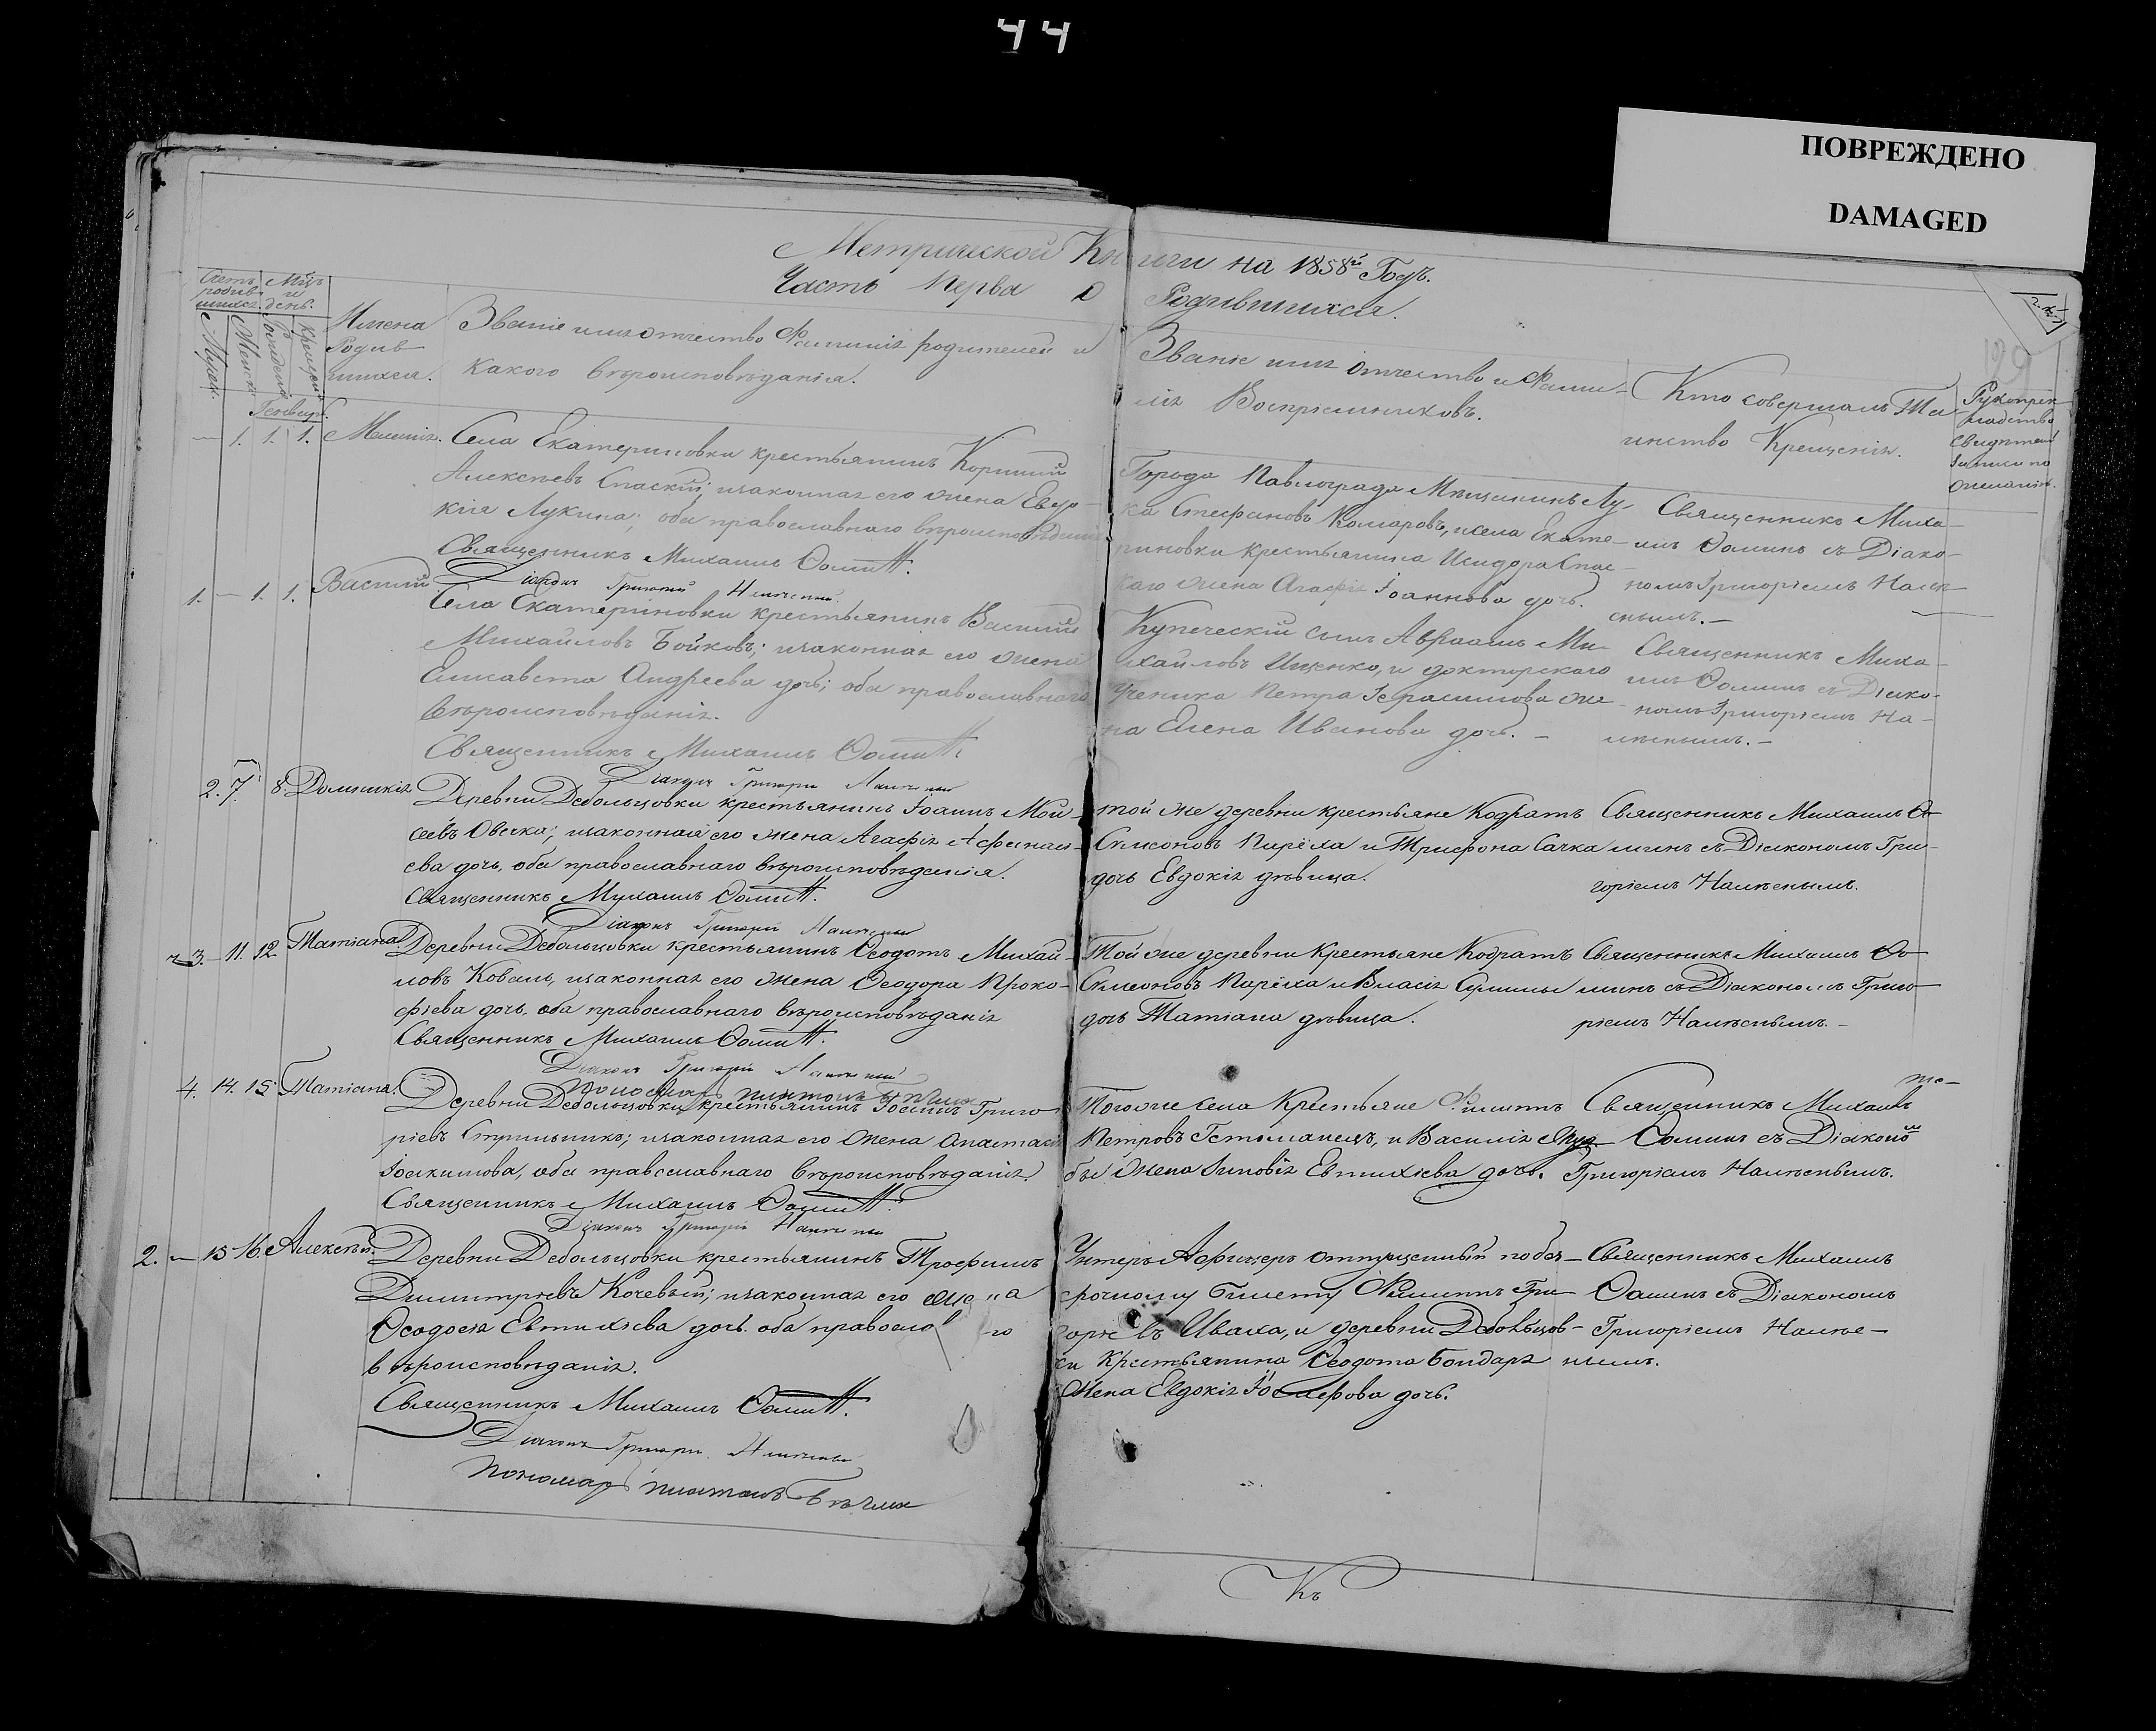 44
ПОВРЕЖДЕНО
DAMAGED
Метрической Книги на 1858й Годъ.
Часть Перва о Родившихся.
Счетъ родив шихся.
Мцъ и день.
Мужск.
Женск.
Рожденія
Крещенія
Имена
Родив
шихся.
Званіе имя отчество Фамилія родителей и
какого вѣроисповѣданія.
Званіе имя отчество и Фами-
лія Воспріемниковъ.
Кто совершалъ Та
инство Крещенія.
Рукопри
кладство
Свидѣтелей
записи по
желанію.
Генварь.
— 1. 1. 1.
Села Екатериновки крестьянинъ
Алексѣевъ Спаскій; изаконная его жена Евдо-
кія Лукина; оба православнаго вѣроисповѣданія
Священникъ Михаилъ Ѳоминъ.
Діаконъ Григорій
Города Павлограда Мѣщанинъ Лу-
ка Стефановъ Комаровъ, исела Екате-
риновки крестьянина Исидора Спас-
каго жена Агафія Іоаннова дочь.
Священникъ Миха-
илъ Ѳоминъ съ Діако-
номъ Григоріемъ
1. — 1. 1. Василій
Села Екатериновки крестьянинъ Василій
Михайловъ Бойковъ; изаконная его жена
Елисавета Андреева дочь; оба православнаго
вѣроисповѣданія.
Священникъ Михаилъ Ѳоминъ.
Діаконъ Григорій
Купеческій сынъ Авраамъ Ми-
хайловъ Ищенко, и докторскаго
ученика Петра Герасимова же-
на Елена Иванова дочь. —
Священникъ Миха-
илъ Ѳоминъ съ Діако-
номъ Григоріемъ
2. 7. 8. Домникія
Деревни Дебольцовки крестьянинъ Іоаннъ Мой-
сеевъ Овечка; изаконная его жена Агафія Афанась-
ева дочь, оба православнаго вѣроисповѣданія.
Священникъ Михаилъ Ѳоминъ.
Діаконъ Григорій
той же деревни крестьяне Кодратъ
Симеоновъ Пирёха и Трифона Сачка
дочь Евдокія дѣвица.
Священникъ Михаилъ Ѳо
минъ съ Діакономъ Гри-
горіемъ
3. — 11. 12. Татіана.
Деревни Дебольцовки крестьянинъ Ѳеодотъ Михай-
ловъ Коваль, изаконная его жена Ѳеодора Проко-
фіева дочь. оба православнаго вѣроисповѣданія
Священникъ Михаилъ Ѳоминъ.
Діаконъ Григорій
Той же деревни Крестьяне Кодратъ
Симеоновъ Пирёха и Власія
дочь Татіана дѣвица.
Священникъ Михаилъ Ѳо-
минъ съ Діакономъ Григо-
ріемъ
4. 14. 15. Татіана.
Деревни Дебольцовки крестьянинъ Іоаннъ Григо-
ріевъ Стрильникъ; изаконная его жена Анастасія
Іоакимова, оба православнаго вѣроисповѣданія.
Священникъ Михаилъ Ѳоминъ.
Діаконъ Григорій
Тогоже села Крестьяне Филиппъ
Петровъ и Василія
бы жена Зиновія Евтихіева дочь.
Священникъ Михаилъ
Ѳоминъ съ Діакономъ
Григоріемъ
2. — 15 16. Алексѣй.
Деревни Дебольцовки крестьянинъ Трофимъ
Димитріевъ Кочевый; изаконная его жена
Ѳеодосія Евтихіева дочь. оба правосла го
вѣроисповѣданія.
Священникъ Михаилъ Ѳоминъ.
Діаконъ Григорій
Пономарь
Унтеръ Афицеръ отпущенный по без-
срочному билету Филиппъ Гри
горіевъ Иваха, и деревни Дебольцов-
ки Крестьянина Ѳеодота Бондаря
жена Евдокія дочь.
Священникъ Михаилъ
Ѳоминъ съ Діакономъ
Григоріемъ
Къ